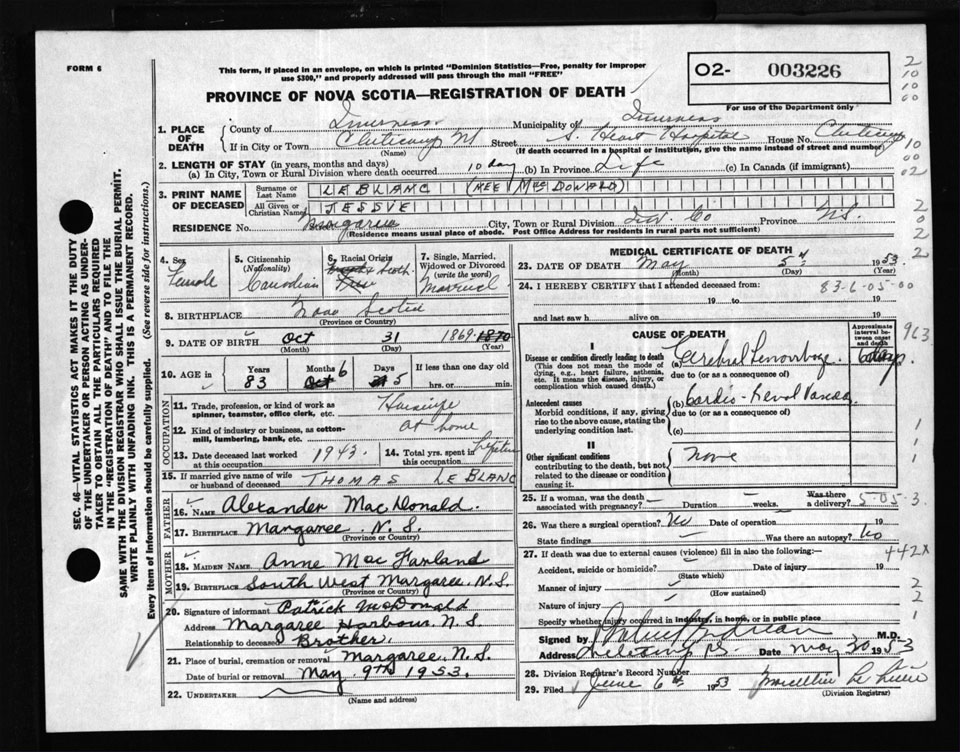 FORM 6
This form, if placed in an envelope, on which is printed "Dominion Statistics—Free, penalty for improper use $300," and properly addressed will pass through the mail "FREE"
O2- 003226
For use of the Department only
PROVINCE OF NOVA SCOTIA—REGISTRATION OF DEATH
1. PLACE OF DEATH
County of Inverness Municipality of Inverness
If in City or Town Street S. Heart Hospital House No.
(Name) (If death occurred in a hospital or institution, give the name instead of street and number)
2. LENGTH OF STAY (in years, months and days)
(a) In City, Town or Rural Division where death occurred 10 day (b) In Province Life (c) In Canada (if immigrant)
3. PRINT NAME OF DECEASED
Surname or Last Name LE BLANC (NEE MacDONALD)
All Given or Christian Names JESSIE
RESIDENCE No. Margaree City, Town or Rural Division Inv. Co Province N.S.
(Residence means usual place of abode. Post Office Address for residents in rural parts not sufficient)
4. Sex Female
5. Citizenship (Nationality) Canadian
6. Racial Origin
7. Single, Married, Widowed or Divorced (write the word) Married
8. BIRTHPLACE Nova Scotia
(Province or Country)
9. DATE OF BIRTH Oct 31 1869 1870
(Month) (Day) (Year)
10. AGE in Years 83 Months 6 Days 5 If less than one day old
hrs. or min.
OCCUPATION
11. Trade, profession, or kind of work as spinner, teamster, office clerk, etc. Housewife
12. Kind of industry or business, as cotton-mill, lumbering, bank, etc. at home
13. Date deceased last worked at this occupation 1943 14. Total yrs. spent in this occupation Lifetime
15. If married give name of wife or husband of deceased THOMAS LE BLANC
FATHER
16. NAME Alexander MacDonald
17. BIRTHPLACE Margaree N.S.
(Province or Country)
MOTHER
18. MAIDEN NAME Anne MacFarland
19. BIRTHPLACE South West Margaree, N.S.
(Province or Country)
20. Signature of informant Patrick McDonald
Address Margaree Harbour, N.S.
Relationship to deceased Brother.
21. Place of burial, cremation or removal Margaree, N.S.
Date of burial or removal May 9th 1953.
22. UNDERTAKER
(Name and Address)
MEDICAL CERTIFICATE OF DEATH
23. DATE OF DEATH May 5th 1953.
(Month) (Day) (Year)
24. I HEREBY CERTIFY that I attended deceased from: 83-6-05-00
19 to 19
and last saw h alive on 19
CAUSE OF DEATH
Approximate interval between onset and death
I
Disease or condition directly leading to death (a) Cerebral Hemorrhage
(This does not mean the mode of dying, e.g., heart failure, asthenia, etc. It means the disease, injury, or complication which caused death.)
due to (or as a consequence of)
Antecedent causes (b) Cardio-Renal Vascular
Morbid conditions, if any, giving rise to the above cause, stating the underlying condition last.
due to (or as a consequence of)
(c)
II
Other significant conditions None
contributing to the death, but not related to the disease or condition causing it.
25. If a woman, was the death associated with pregnancy? Duration of pregnancy weeks. Was there a delivery? 5-05-3
26. Was there a surgical operation? No Date of operation 19
State findings Was there an autopsy? No
27. If death was due to external causes (violence) fill in also the following:— 442X
Accident, suicide or homicide? Date of injury 19
(State which)
Manner of injury
(How sustained)
Nature of injury
Specify whether injury occurred in industry, in home, or in public place
Signed by M.D.
Address Date May 30 1953
28. Division Registrar's Record Number
29. Filed June 6th 1953
(Division Registrar)
SEC. 46—VITAL STATISTICS ACT MAKES IT THE DUTY OF THE UNDERTAKER OR PERSON ACTING AS UNDERTAKER TO OBTAIN ALL THE PARTICULARS REQUIRED IN THE "REGISTRATION OF DEATH" AND TO FILE THE SAME WITH THE DIVISION REGISTRAR WHO SHALL ISSUE THE BURIAL PERMIT.
WRITE PLAINLY WITH UNFADING INK. THIS IS A PERMANENT RECORD.
Every item of Information should be carefully supplied. (See reverse side for instructions.)